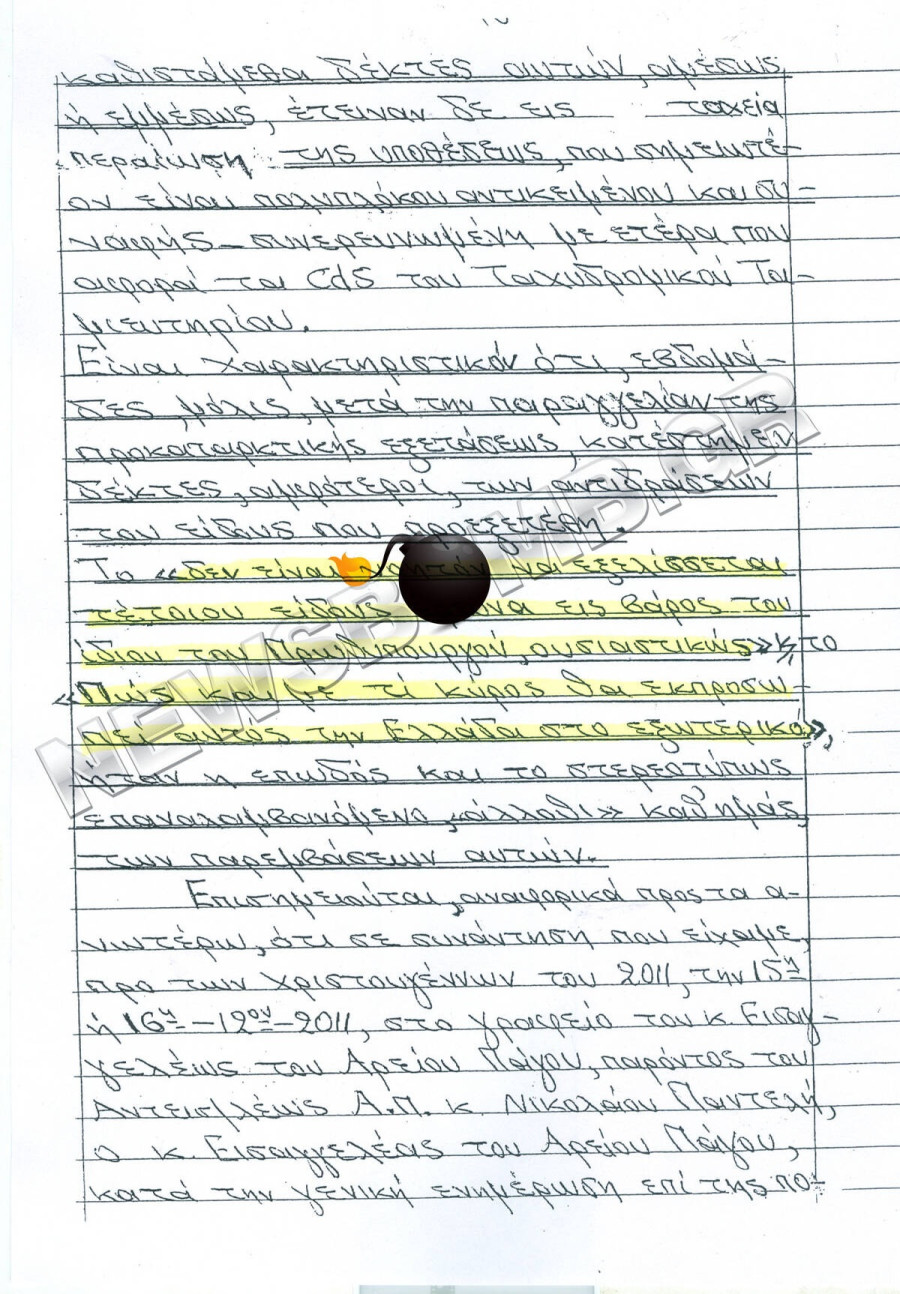 καθιστάμεθα δέκτες αυτών, αμέσως
ή εμμέσως, έτειναν δε εις ταχεία
περαίωση της υποθέσεως, που σημειωτέ-
ον είναι πολυπλόκου αντικειμένου και συ-
ναφής – συνερευνωμένη με ετέρα που
αφορά τα CdS του Ταχυδρομικού Τα-
μιευτηρίου.
Είναι χαρακτηριστικόν ότι, εβδομά-
δες, μόλις, μετά την παραγγελίαν της
προκαταρκτικής εξετάσεως, κατέστημεν
δέκτες, αμφότεροι, των αντιδράσεων
του είδους που προεξετέθη.
Το «δεν είναι νοητόν να εξελίσσεται
τέτοιου είδους έρευνα εις βάρος του
ίδιου του Πρωθυπουργού, ουσιαστικώς» ή, το
«Πώς και με τί κύρος θα εκπροσω-
πεί αυτός την Ελλάδα στο εξωτερικό»,
ήταν η επωδός και το στερεοτύπως
επαναλαμβανόμενο, «άλλοθι» καθ' ημάς,
των παρεμβάσεων αυτών.
Επισημειούται, αναφορικά προς τα α-
νωτέρω, ότι σε συνάντηση που είχαμε,
προ των Χριστουγέννων του 2011, την 15η
ή 16η-12ου-2011, στο γραφείο του κ. Εισαγ-
γελέως του Αρείου Πάγου, παρόντος του
Αντεισ/λέως Α.Π. κ. Νικολάου Παντελή,
ο κ. Εισαγγελέας του Αρείου Πάγου,
κατά την γενική ενημέρωση επί της πο-
NEWSBOMB.GR